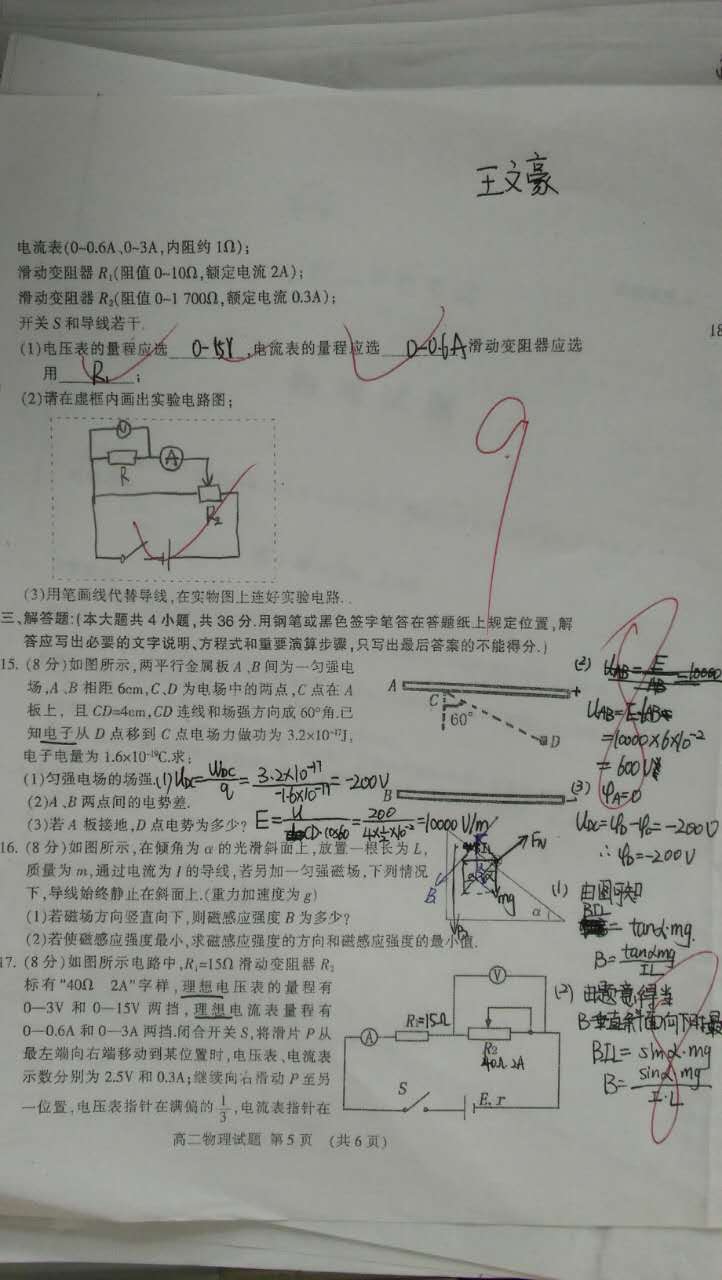 王文豪
电流表(0~0.6A、0~3A,内阻约1Ω);
滑动变阻器R₁(阻值0~10Ω,额定电流2A);
滑动变阻器R₂(阻值0~1 700Ω,额定电流0.3A);
开关S和导线若干.
18
(1)电压表的量程应选 0-15V ,电流表的量程应选 0-0.6A 滑动变阻器应选
用 R₁ ;
(2)请在虚框内画出实验电路图;
V
A
R
R₂
9
(3)用笔画线代替导线,在实物图上连好实验电路.
三、解答题:(本大题共4小题,共36分.用钢笔或黑色签字笔答在答题纸上规定位置,解
答应写出必要的文字说明、方程式和重要演算步骤,只写出最后答案的不能得分.)
15.(8分)如图所示,两平行金属板A、B间为一匀强电
场,A、B相距6cm,C、D为电场中的两点,C点在A
板上,且CD=4cm,CD连线和场强方向成60°角.已
知电子从D点移到C点电场力做功为3.2×10⁻¹⁷J,
电子电量为1.6×10⁻¹⁹C.求:
(1)匀强电场的场强.
(2)A、B两点间的电势差.
(3)若A板接地,D点电势为多少?
A
+
C
60°
D
B
(1) U_DC = W_DC/q = 3.2×10⁻¹⁷/-1.6×10⁻¹⁹ = -200V
E = U/CD·cos60 = 200/4×½×10⁻² = 10000 V/m
(2)
U_AB = E·d_AB
=10000×6×10⁻²
= 600V
(3)
φ_A=0
U_DC = φ_D-φ_C = -200V
∴ φ_D=-200V
16.(8分)如图所示,在倾角为α的光滑斜面上,放置一根长为L,
质量为m,通过电流为I的导线,若另加一匀强磁场,下列情况
下,导线始终静止在斜面上.(重力加速度为g)
(1)若磁场方向竖直向下,则磁感应强度B为多少?
(2)若使磁感应强度最小,求磁感应强度的方向和磁感应强度的最小值.
F_N
mg
B
α
(1) 由图可知
BIL = tanα·mg.
B= tanαmg/IL
(2) 由题意得当
BIL = sinα·mg
B= sinα mg/I·L
17.(8分)如图所示电路中,R₁=15Ω滑动变阻器R₂
标有“40Ω 2A”字样,理想电压表的量程有
0—3V和0—15V两挡,理想电流表量程有
0—0.6A和0—3A两挡.闭合开关S,将滑片P从
最左端向右端移动到某位置时,电压表、电流表
示数分别为2.5V和0.3A;继续向右滑动P至另
一位置,电压表指针在满偏的1/3,电流表指针在
V
A
R₁=15Ω
R₂
40Ω 2A
S
E, r
高二物理试题 第5页 (共6页)